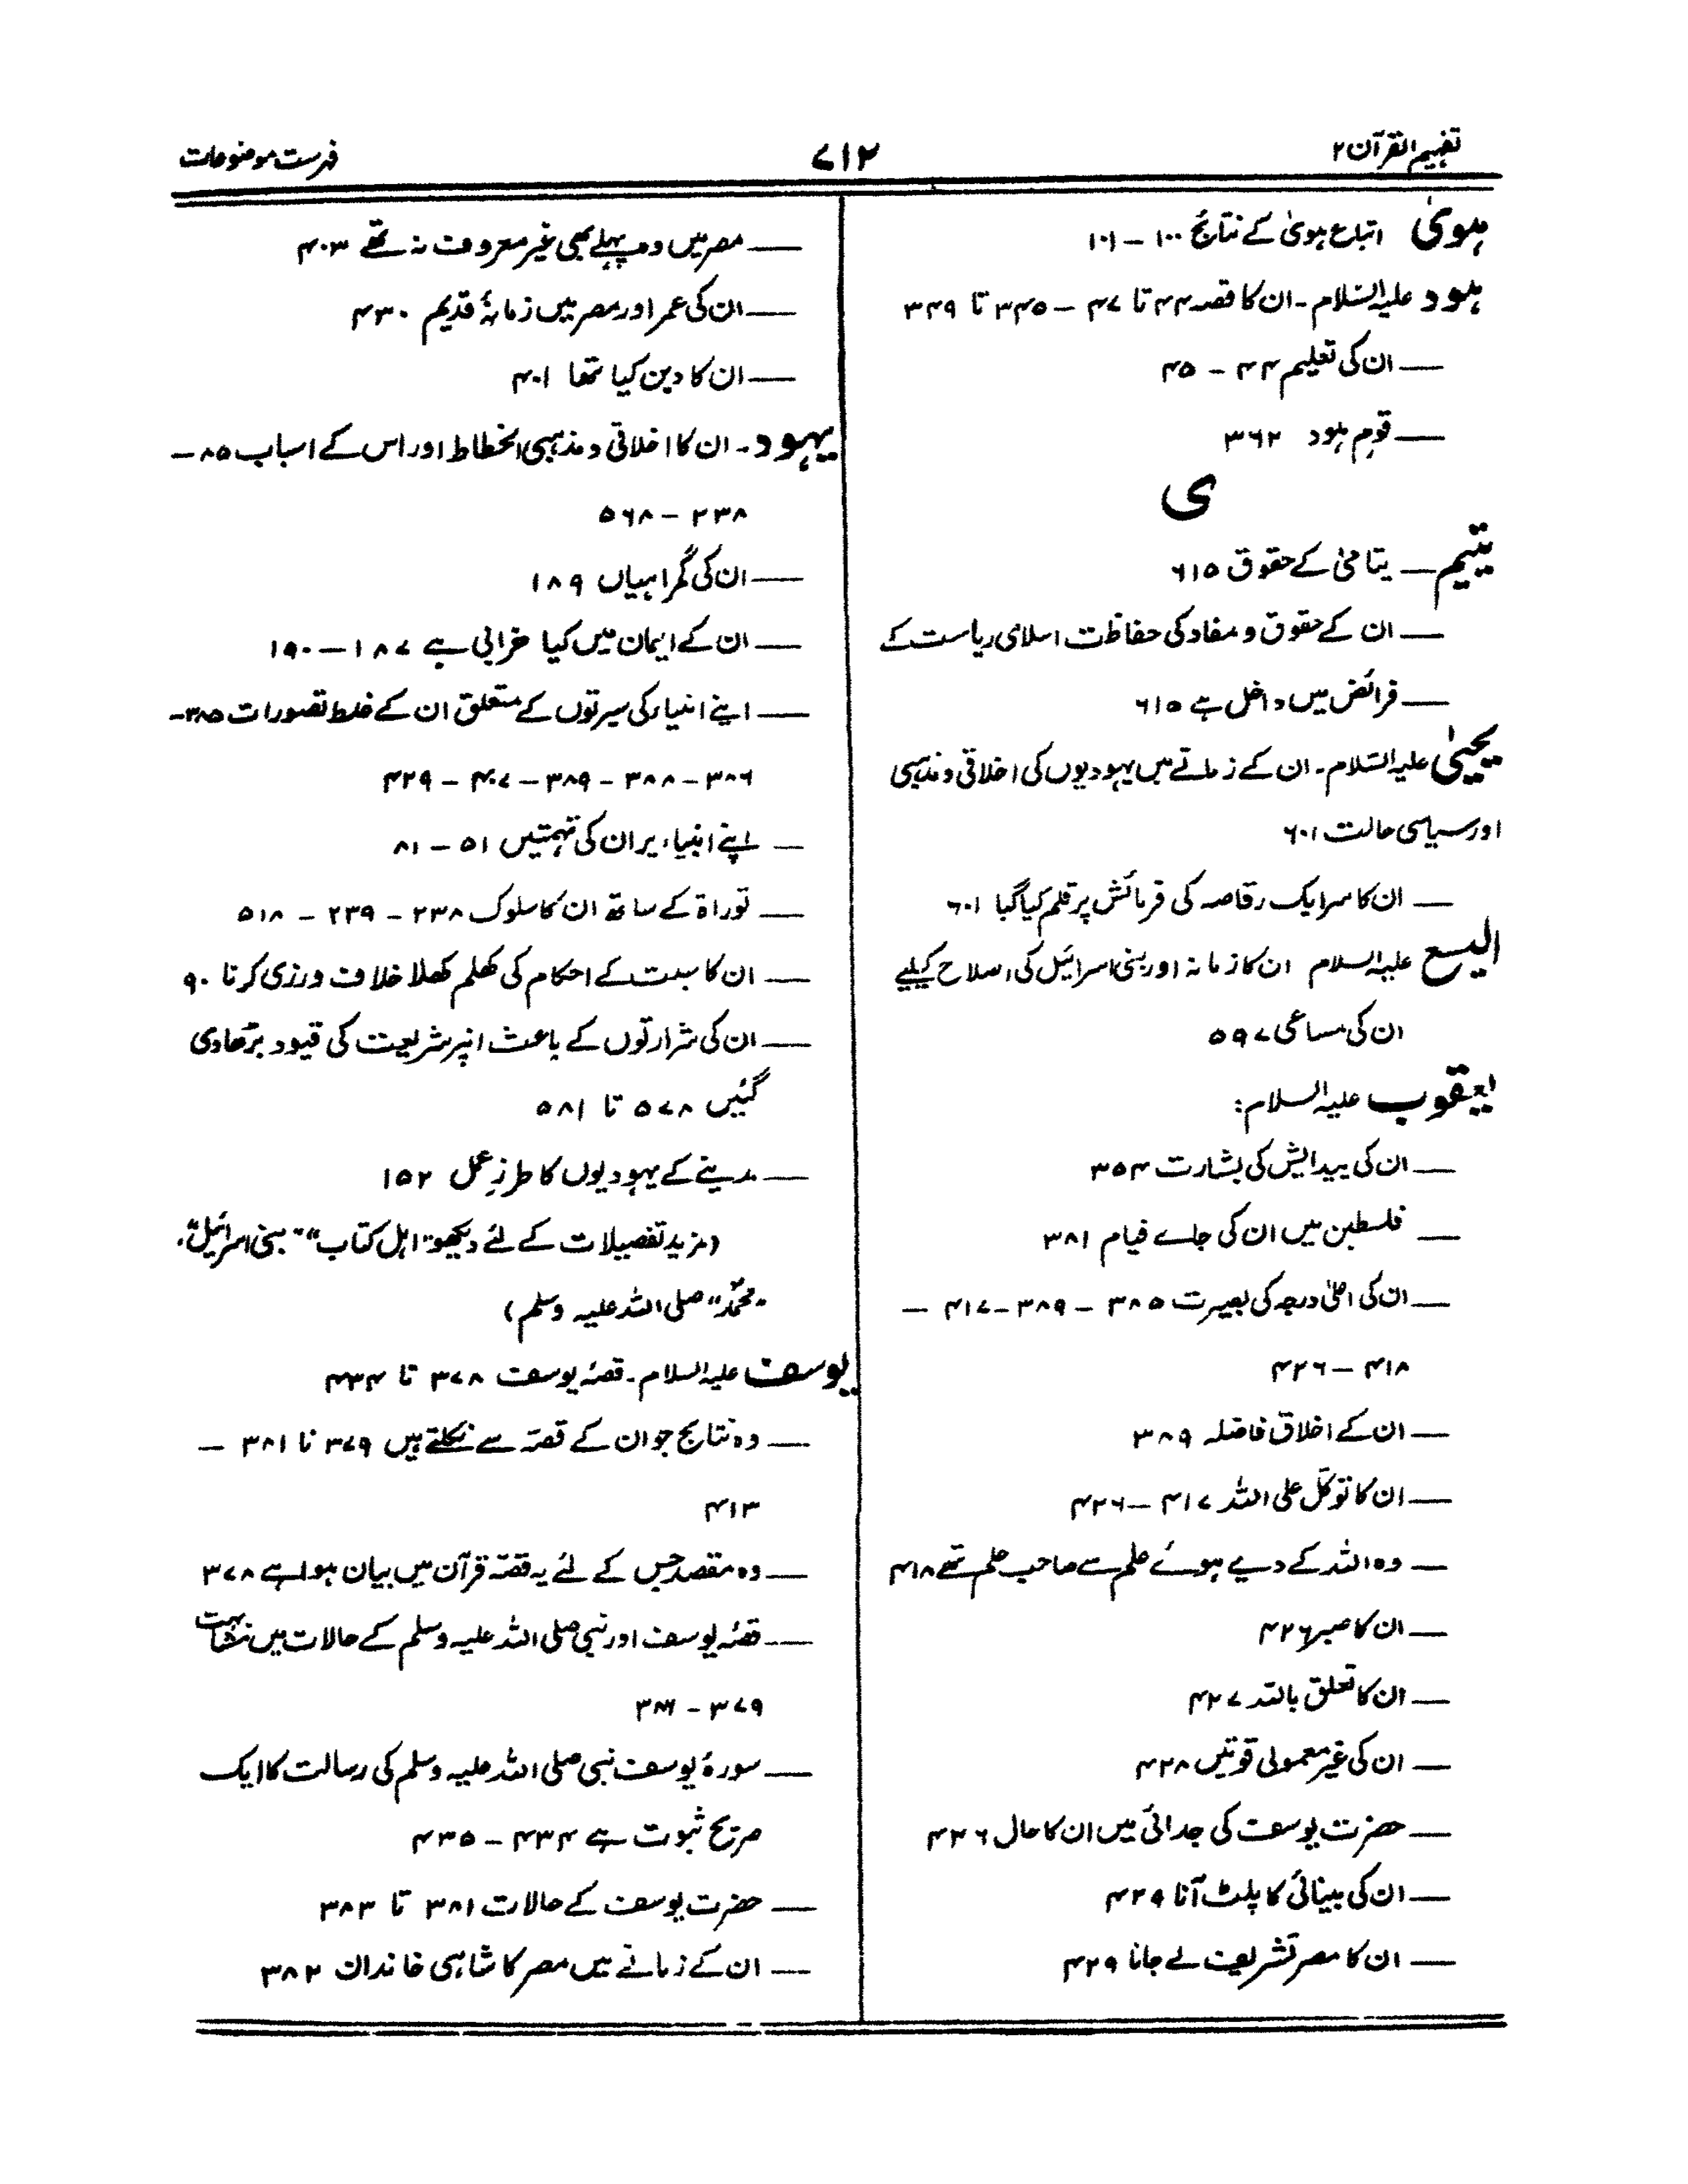 تفہیم القرآن ۲
۷۱۲
فہرست موضوعات
ہویٰ اتباع ہویٰ کے نتائج ۱۰۰ – ۱۰۱
ہود علیہ السّلام - ان کا قصہ ۴۴ تا ۴۷ – ۳۴۵ تا ۳۴۹
— ان کی تعلیم ۴۴ – ۴۵
— قومِ ہود ۳۶۲
ی
یتیم — یتامیٰ کے حقوق ۶۱۵
— ان کے حقوق و مفاد کی حفاظت اسلامی ریاست کے
— فرائض میں داخل ہے ۶۱۵
یحییٰ علیہ السّلام - ان کے زمانے میں یہودیوں کی اخلاقی و مذہبی
اور سیاسی حالت ۶۰۱
— ان کا سر ایک رقاصہ کی فرمائش پر قلم کیا گیا ۶۰۱
الیسع علیہ السلام ان کا زمانہ اور بنی اسرائیل کی اصلاح کیلیے
ان کی مساعی ۵۹۷
یعقوب علیہ السلام:
— ان کی پیدایش کی بشارت ۳۵۴
— فلسطین میں ان کی جاے قیام ۳۸۱
— ان کی اعلیٰ درجہ کی بصیرت ۳۸۵ – ۳۸۹ – ۴۱۷ –
۴۱۸ – ۴۲۶
— ان کے اخلاق فاضلہ ۳۸۹
— ان کا توکّل علی اللہ ۴۱۷ – ۴۲۶
— وہ اللہ کے دیے ہوئے علم سے صاحب علم تھے ۴۱۸
— ان کا صبر ۴۲۶
— ان کا تعلق باللہ ۴۲۷
— ان کی غیر معمولی قوتیں ۴۲۸
— حضرت یوسف کی جدائی میں ان کا حال ۴۲۶
— ان کی بینائی کا پلٹ آنا ۴۲۹
— ان کا مصر تشریف لے جانا ۴۲۹
— مصر میں وہ پہلے بھی غیر معروف نہ تھے ۴۰۳
— ان کی عمر اور مصر میں زمانۂ قدیم ۴۳۰
— ان کا دین کیا تھا ۴۰۱
یہود - ان کا اخلاقی و مذہبی انحطاط اور اس کے اسباب ۸۵ –
۲۳۸ – ۵۶۸
— ان کی گمراہیاں ۱۸۹
— ان کے ایمان میں کیا خرابی ہے ۱۸۷ – ۱۹۰
— اپنے انبیاء کی سیرتوں کے متعلق ان کے غلط تصورات ۳۸۵ –
۳۸۶ – ۳۸۸ – ۳۸۹ – ۴۰۷ – ۴۲۹
— اپنے انبیاء پر ان کی تہمتیں ۵۱ – ۸۱
— توراۃ کے ساتھ ان کا سلوک ۲۳۸ – ۲۳۹ – ۵۱۸
— ان کا سبت کے احکام کی کھلم کھلا خلاف ورزی کرنا ۹۰
— ان کی شرارتوں کے باعث انپر شریعت کی قیود بڑھادی
گئیں ۵۷۸ تا ۵۸۱
— مدینے کے یہودیوں کا طرزِ عمل ۱۵۲
(مزید تفصیلات کے لئے دیکھو "اہل کتاب" "بنی اسرائیل"،
"محمّد" صلی اللہ علیہ وسلم)
یوسف علیہ السلام - قصۂ یوسف ۳۷۸ تا ۴۳۴
— وہ نتائج جو ان کے قصّہ سے نکلتے ہیں ۳۷۹ تا ۳۸۱ –
۴۱۳
— وہ مقصد جس کے لئے یہ قصّہ قرآن میں بیان ہوا ہے ۳۷۸
— قصۂ یوسف اور نبی صلی اللہ علیہ وسلم کے حالات میں مشابہت
۳۷۹ –
— سورۂ یوسف نبی صلی اللہ علیہ وسلم کی رسالت کا ایک
صریح ثبوت ہے ۴۳۴ – ۴۳۵
— حضرت یوسف کے حالات ۳۸۱ تا ۳۸۳
— ان کے زمانے میں مصر کا شاہی خاندان ۳۸۲